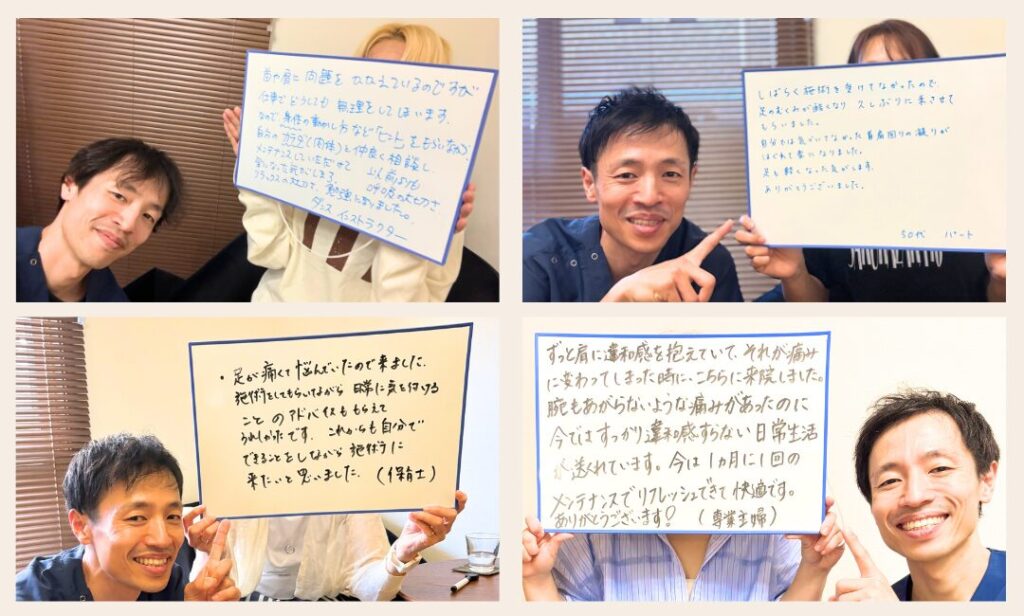 首や肩に問題をかかえているのですが
仕事でどうしても無理をしてしまいます。
なので、身体の動かし方など「ヒント」をもらいながら、
自分のカラダ(肉体)と仲良く相談し、
メンテナンスしていただけて 以前よりも
楽になった気がします。
リラックスの大切さ、勉強になりました。
ダンス インストラクター
しばらく施術を受けてなかったので、
足のむくみが酷くなり 久しぶりに来させて
もらいました。
自分では気づいてなかった首肩回りの凝りが
ほぐれて楽になりました。
足も軽くなった気がします。
ありがとうございました。
50代 パート
・足が痛くて悩んでいたので来ました。
施術をしてもらいながら 日常に気を付ける
ことのアドバイスももらえて
うれしかったです。これからも自分で
できることをしながら施術に
来たいと思いました。(保育士)
ずっと肩に違和感を抱えていて、それが痛み
に変わってしまった時に、こちらに来院しました。
腕もあがらないような痛みがあったのに
今ではすっかり違和感すらない日常生活
が送れています。今は1ヵ月に1回の
メンテナンスでリフレッシュできて快適です。
ありがとうございます! (専業主婦)